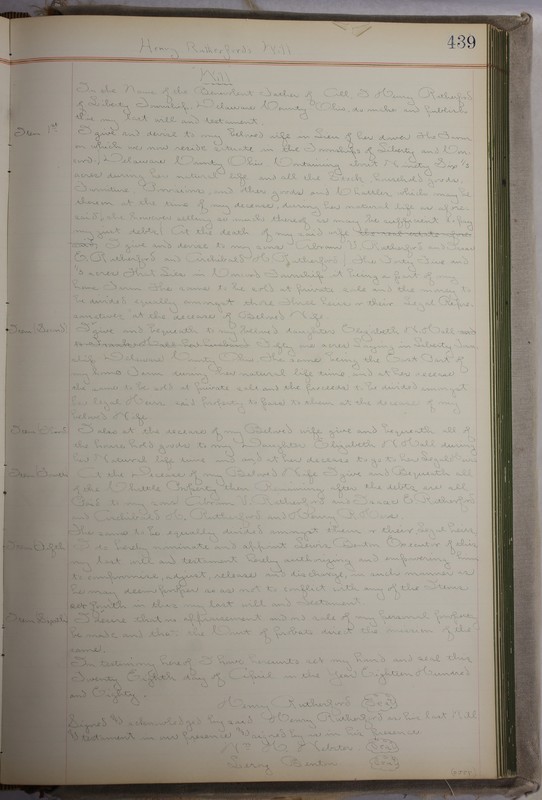 439
Henry Rutherford's Will
Will
In the Name of the Benevolent Father of All, I Henry Rutherford
of Liberty Township, Delaware County Ohio, do make and publish
this my last will and testament.
Item 1st I give and devise to my beloved wife in lieu of her dower the Farm
on which we now reside situate in the Townships of Liberty and
Delaware County Ohio Containing about Ninety Six ½
acres during her natural life and all the Stock, household goods,
Furniture, Provisions, and other goods and Chattles which may be
thereon at the time of my decease, during her natural life as afore
said; she however selling so much thereof as may be sufficient to pay
my just debts. At the death of my said wife
I give and devise to my sons V. Rutherford and
E. Rutherford and Archibald H. Rutherford the Forty Five and
½ acres that lies in Township it being a part of my
home Farm the same to be sold at private sale and the money to
be divided equally amongst those three heirs or their Legal Repre-
sentatives at the decease of Beloved Wife
Item Second I give and bequeath to my beloved daughter Elizabeth N. Hall
Fifty one acres Laying in Liberty Town
ship Delaware County Ohio the same being the East Part of
my home Farm during her natural life time and at her decease
the same to be sold at private sale and the proceeds to be divided amongst
her legal Heirs, said property to pass to them at the decease of my
beloved Wife.
Item Third I also at the decease of my Beloved wife give and bequeath all of
the house hold goods to my Daughter Elizabeth N. Hall during
her Natural life time and at her decease to go to her Legal Heirs
Item Fourth At the decease of my Beloved Wife I give and Bequeath all
of the Chattle Property then Remaining after the debts are all
Paid to my sons V. Rutherford and E. Rutherford
and Archibald H. Rutherford and Henry
the same to be equally divided amongst them or their legal heirs
Item Fifth I do hereby nominate and appoint Executor of this
my last will and testament hereby authorizing and empowering him
to compromise, adjust, release and discharge, in such manner as
he may deem proper so as not to conflict with any of the Items
set forth in this my last will and testament
Item Sixth I desire that no appraisement and no sale of my personal property
be made and that the Court of Probate direct the omission of the
same.
In testimony hereof I have hereunto set my hand and seal this
Twenty Eighth day of April in the Year Eighteen Hundred
and Eighty.
Henry Rutherford (Seal)
Signed & acknowledged by said Henry Rutherford as his last Will
& testament in our presence & signed by us in his presence
Webster (Seal)
Benton (Seal)